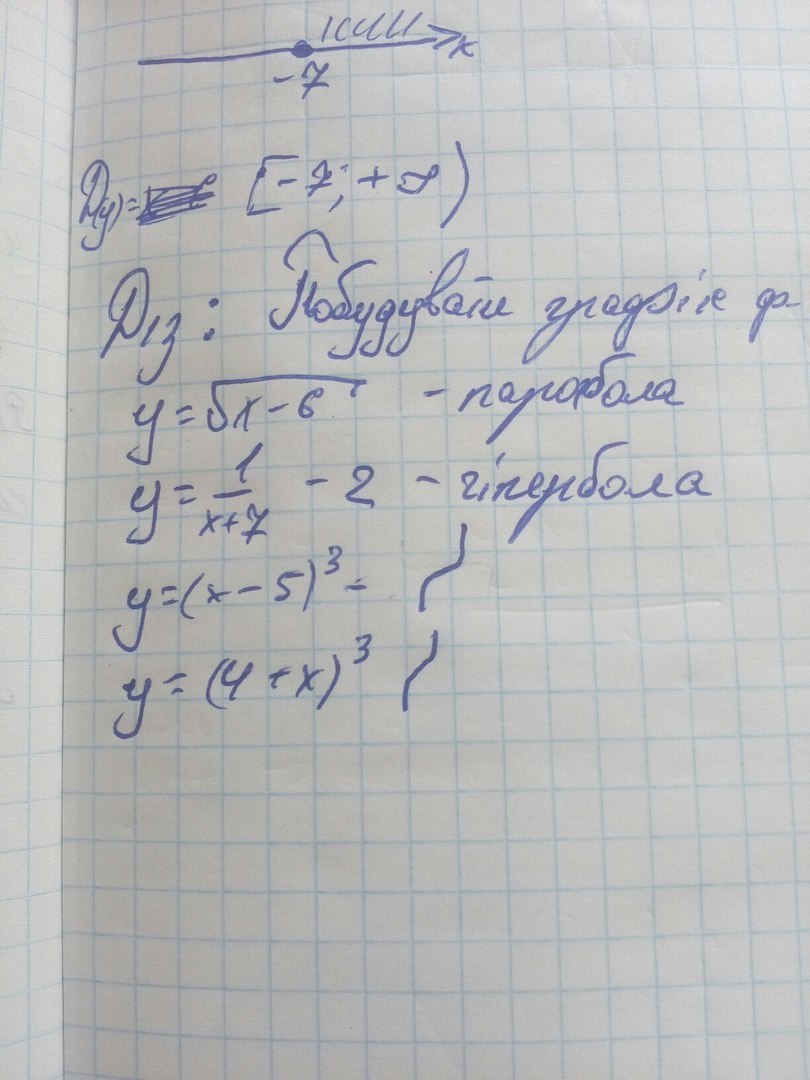 x
-7
D(y)= [-7; +∞)
Д/з: Побудувати графік ф-
y=√x-6 - парабола
y=1/(x+7) - 2 - гіпербола
y=(x-5)³ -
y=(4+x)³